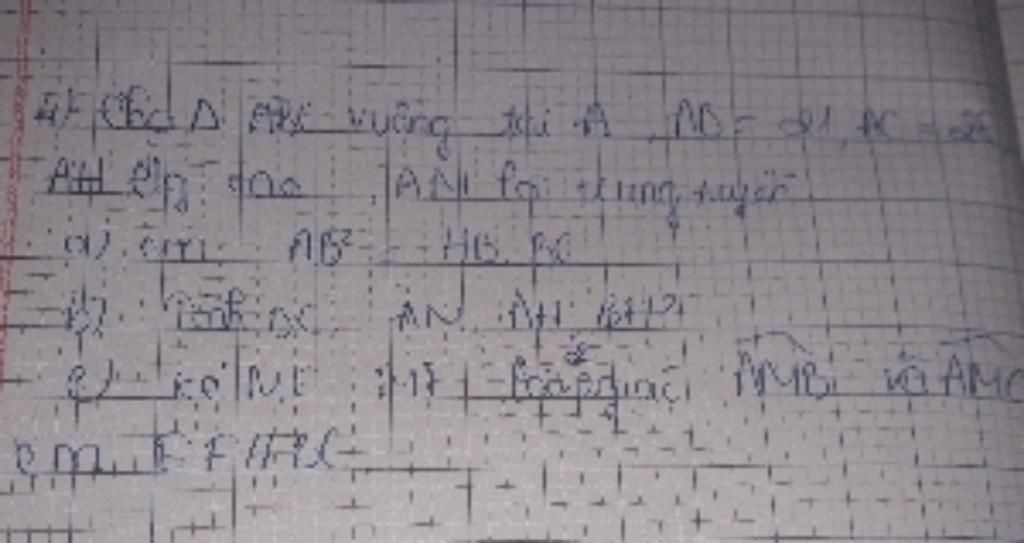 Cho Δ ABC vuông tại A, AB = 21, AC =
AH đg cao, AM là trung tuyến
a) cm AB² = HB. BC
b) Tính BC, AM, AH, BH?
c) kẻ ME, MF là phân giác AMB và AMC
cm EF // BC